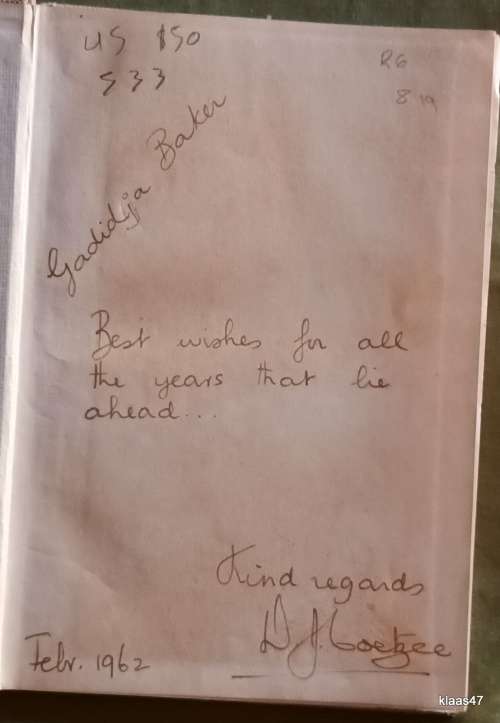 US $50
533
R6
819
Gadidja Baker
Best wishes for all
the years that lie
ahead...
Kind regards
D. J. Coetzee
Febr. 1962
klaas47